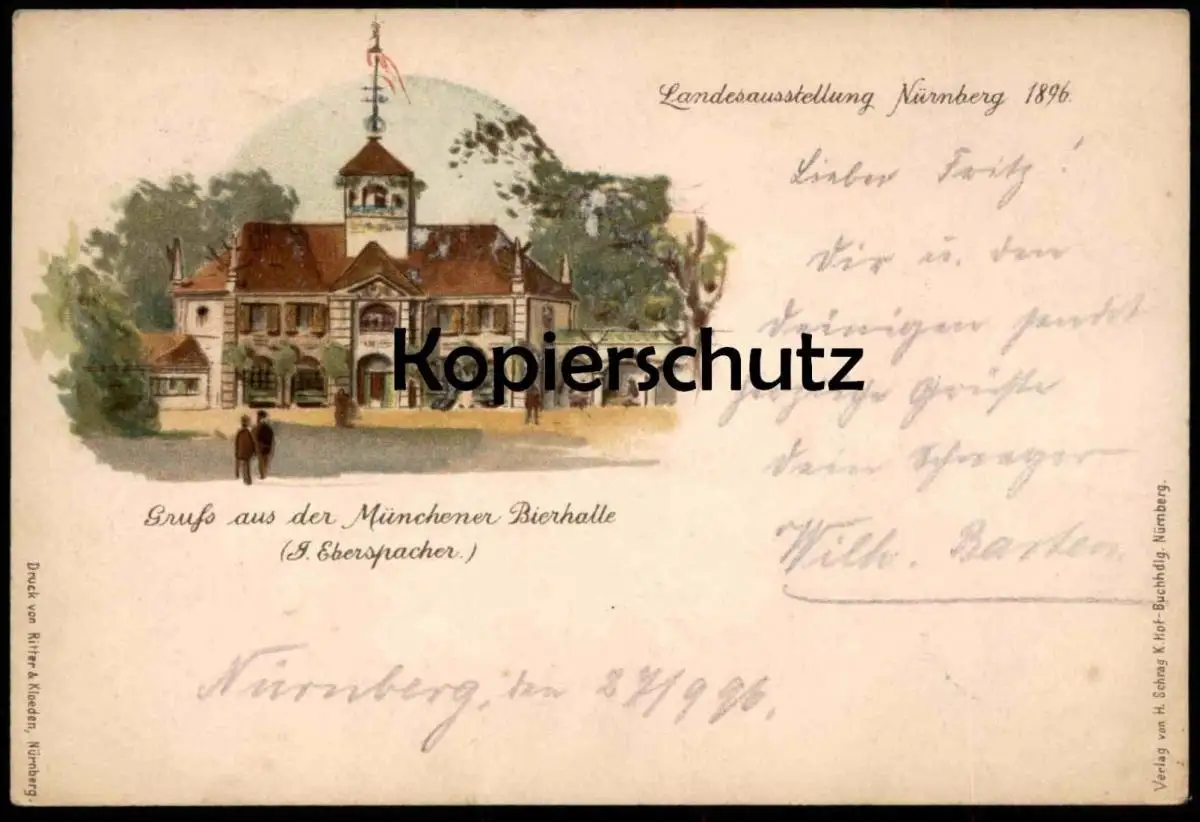 Landesausstellung Nürnberg 1896.
Lieber Fritz!
Dir u. den
Deinigen sendet
herzliche Grüße
Dein Schwager
Wilh. Barten.
Kopierschutz
Gruſs aus der Münchener Bierhalle
(J. Eberspacher.)
Nürnberg, den 27/9 96.
Druck von Ritter & Kloeden, Nürnberg.
Verlag von H. Schrag K. Hof-Buchhdlg. Nürnberg.